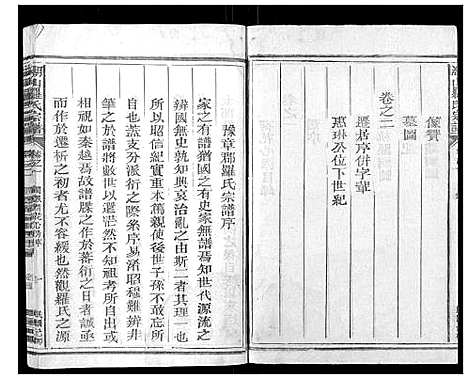 像贊
墓圖
卷之二
遷居序併字輩
惠琳公位下世紀
豫章郡羅氏宗譜序
家之有譜猶國之有史家無譜焉知世代源流之
辨國無史孰知興衰治亂之由斯二者其理一也
然昭信紀實重本篤親使後世子孫不敢忘所
自焉支分派衍之際条序易淆昭穆難辨非
筆之於譜將數世以還茫然不知祖考所自出或
相視如秦越焉故譜牒之作於蕃衍之日者誠亟
而作於遷析之初者尤不容緩也然觀羅氏之源